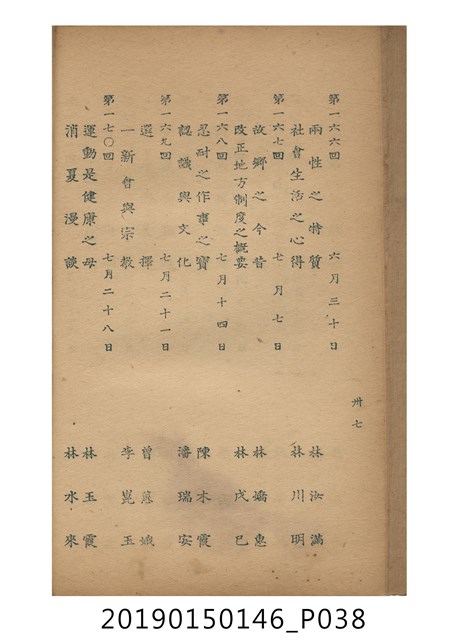 第一六六回 六月三十日
兩性之特質 林汝滿
社會生活之心得 林川明
第一六七回 七月七日
故鄉之今昔 林嬌惠
改正地方制度之概要 林戊巳
第一六八回 七月十四日
忍耐之作事之寶 陳木霞
認識與文化 潘瑞安
第一六九回 七月二十一日
選擇 曾慈娥
一新會與宗教 李崑玉
第一七〇回 七月二十八日
運動是健康之母 林玉霞
消夏漫談 林水來
卅七
20190150146_P038